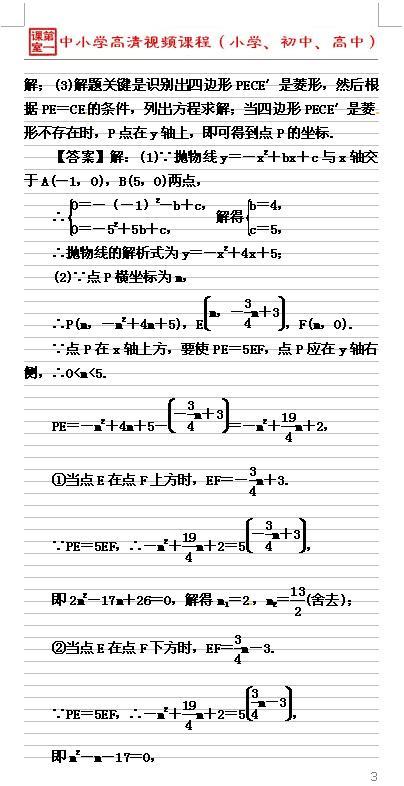 课第室一 中小学高清视频课程（小学、初中、高中）
解；(3)解题关键是识别出四边形PECE′是菱形，然后根
据PE＝CE的条件，列出方程求解；当四边形PECE′是菱
形不存在时，P点在y轴上，即可得到点P的坐标．
【答案】解：(1)∵抛物线y＝－x²＋bx＋c与x轴交
于A(－1，0)，B(5，0)两点，
∴{0＝－（－1）²－b＋c，0＝－5²＋5b＋c， 解得{b＝4，c＝5，
∴抛物线的解析式为y＝－x²＋4x＋5；
(2)∵点P横坐标为m，
∴P(m，－m²＋4m＋5)，E(m，－3/4m＋3)，F(m，0)．
∵点P在x轴上方，要使PE＝5EF，点P应在y轴右
侧，∴0<m<5．
PE＝－m²＋4m＋5－(－3/4m＋3)＝－m²＋19/4m＋2，
①当点E在点F上方时，EF＝－3/4m＋3．
∵PE＝5EF，∴－m²＋19/4m＋2＝5(－3/4m＋3)，
即2m²－17m＋26＝0，解得m₁＝2，m₂＝13/2(舍去)；
②当点E在点F下方时，EF＝3/4m－3．
∵PE＝5EF，∴－m²＋19/4m＋2＝5(3/4m－3)，
即m²－m－17＝0，
3